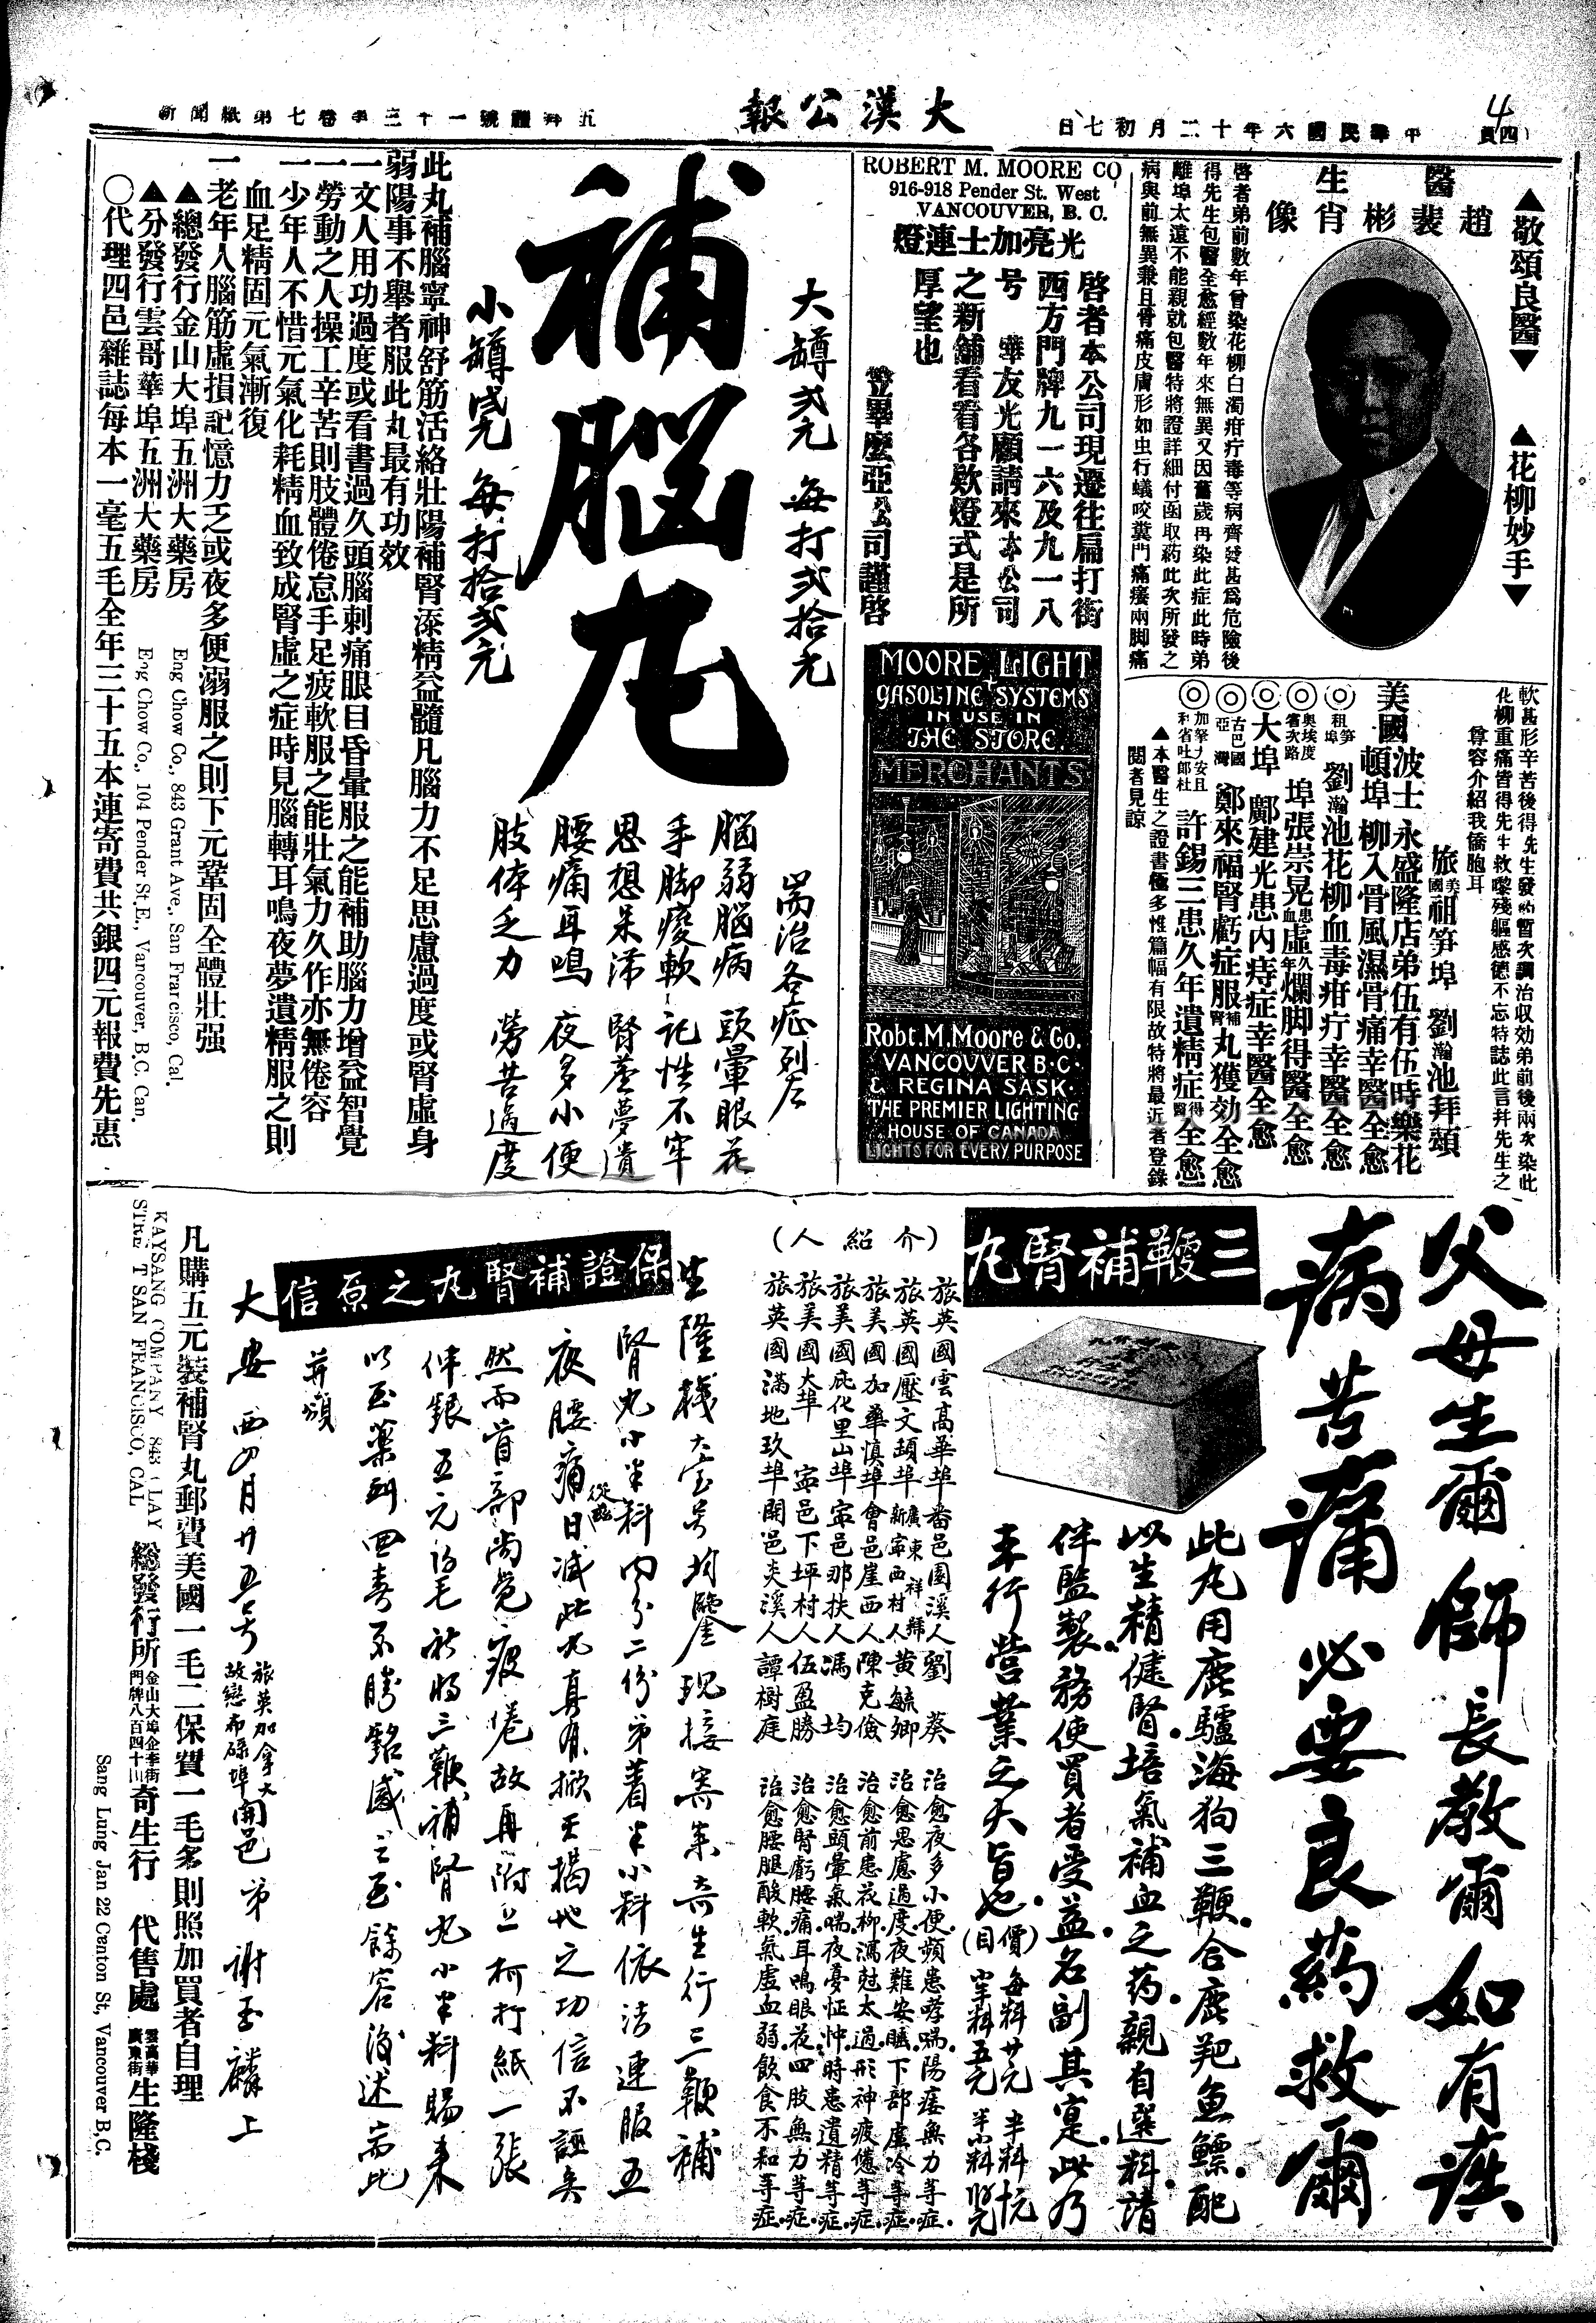 四頁
中華民國六年十二月初七日
大漢公報
4
▲敬頌良醫▼
▲花柳妙手▼
醫生
趙裴彬肖像
啓者弟前數年曾染花柳白濁疳疔毒等病齊發甚爲危險後
得先生包醫全愈經數年來無異又因舊歲再染此症此時弟
離埠太遠不能親就包醫特將證詳細付函取葯此次所發之
病與前無異兼且骨痛皮膚形如虫行蟻咬糞門痛癢兩脚痛
軟甚形辛苦後得先生發葯暫次調治收効弟前後兩次染此
花柳重痛皆得先生救嚟殘軀感德不忘特誌此言幷先生之
尊容介紹我僑胞耳
旅美國祖笋埠 劉瀚池拜頌
美國波士頓埠永盛隆店弟伍有伍時樂花柳入骨風濕骨痛幸醫全愈
◎祖笋埠 劉瀚池花柳血毒疳疔幸醫全愈
◎奧埃度省次路埠張崇晃患血虛久年爛脚得醫全愈
◎大埠 鄺建光患內痔症幸醫全愈
◎古巴國亞灣 鄭來福腎虧症服補腎丸獲効全愈
◎許錫三患久年遺精症得醫全愈
▲本醫生之證書極多惟篇幅有限故特將最近者登錄
閱者見諒
ROBERT M. MOORE CO
916-918 Pender St. West
VANCOUVER, B. C.
光亮加士連燈
啓者本公司現遷往扁打街
西方門牌九一六及九一八
号 嘩友光顧請來本公司
之新舖看看各欵燈式是所
厚望也
笠畢麼亞公司謹啓
MOORE LIGHT
GASOLINE SYSTEMS
IN USE IN
THE STORE.
MERCHANTS
Robt. M. Moore & Co.
VANCOUVER B.C.
& REGINA SASK.
THE PREMIER LIGHTING
HOUSE OF CANADA
LIGHTS FOR EVERY PURPOSE
大罇弍元 每打弍拾元
補腦丸
小罇 每打拾弍元
耑治各症列左
腦弱腦病 頭暈眼花
手脚痠軟 記性不牢
思想呆滯 腎虛夢遺
腰痛耳鳴 夜多小便
肢体乏力 勞苦過度
此丸補腦寧神舒筋活絡壯陽補腎添精益髓凡腦力不足思慮過度或腎虛身
弱陽事不舉者服此丸最有功效
一文人用功過度或看書過久頭腦刺痛眼目昏暈服之能補助腦力增益智覺
一勞動之人操工辛苦則肢體倦怠手足疲軟服之能壯氣力久作亦無倦容
一少年人不惜元氣化耗精血致成腎虛之症時見腦轉耳鳴夜夢遺精服之則
血足精固元氣漸復
一老年人腦筋虛損記憶力乏或夜多便溺服之則下元鞏固全體壯强
▲總發行金山大埠五洲大藥房
Eng Chow Co., 843 Grant Ave., San Francisco, Cal.
▲分發行雲哥華埠五洲大藥房
Eng Chow Co., 104 Pender St. E., Vancouver, B.C. Can.
〇代理四邑雜誌每本一毫五毛全年三十五本連寄費共銀四元報費先惠
父母生爾 師長教爾 如有疾
病苦痛 必要良葯救爾
三鞭補腎丸
此丸用鹿驢海狗三鞭合鹿羓魚鰾配
以生精健腎培氣補血之葯親自選料請
伴監製務使買者受益名副其寔此乃
本行營業之大旨也
(價目)
(介紹人)
旅英國雲高華埠番邑園溪人劉葵 治愈夜多小便頻患哮喘陽痿無力等症
旅英國壓文頓埠新寧西村人黃毓卿 治愈思慮過度夜難安眠下部虛冷等症
旅美國加華慎埠會邑崖西人陳克儉 治愈前患花柳瀉尅太過形神疲憊等症
旅美國庇化里山埠寧邑那扶人馮均 治愈頭暈氣喘夜憂怔忡時患遺精等症
旅美國大埠 寧邑下坪村人伍盈勝 治愈腎虧腰痛耳鳴眼花四肢無力等症
旅英國滿地玖埠開邑炎溪人譚樹庭 治愈腰腿酸軟氣虛血弱飲食不和等症
保證補腎丸之原信
生隆棧大宝号均鑒現接寄來奇生行三鞭補
腎丸小半料內分二份弟着半小料依法連服五
夜腰痛日減此丸真有掀天揭地之功信不誣矣
然而首部尚覺疲倦故再附上柯打紙一張
伸銀五元 祈将三鞭補腎丸小半料賜來
以至藥到回春不勝銘感之至餘容後述耑此
并頌
大安 西四月廿五号
旅英加拿大
開邑弟 謝丕麟上
凡購五元裝補腎丸郵費美國一毛二保費一毛多則照加買者自理
KAYSANG COMPANY 843 CLAY
STREET SAN FRANCISCO, CAL
總發行所 奇生行 代售處 雲高華廣東街 生隆棧
Sang Lung Jan 22 Canton St, Vancouver B.C.